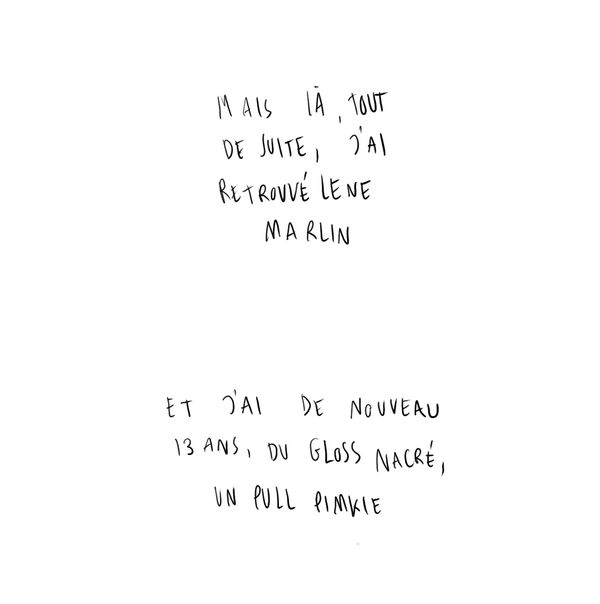 MAIS LÀ, TOUT
DE SUITE, J'AI
RETROUVÉ LENE
MARLIN
ET J'AI DE NOUVEAU
13 ANS, DU GLOSS NACRÉ,
UN PULL PIMKIE